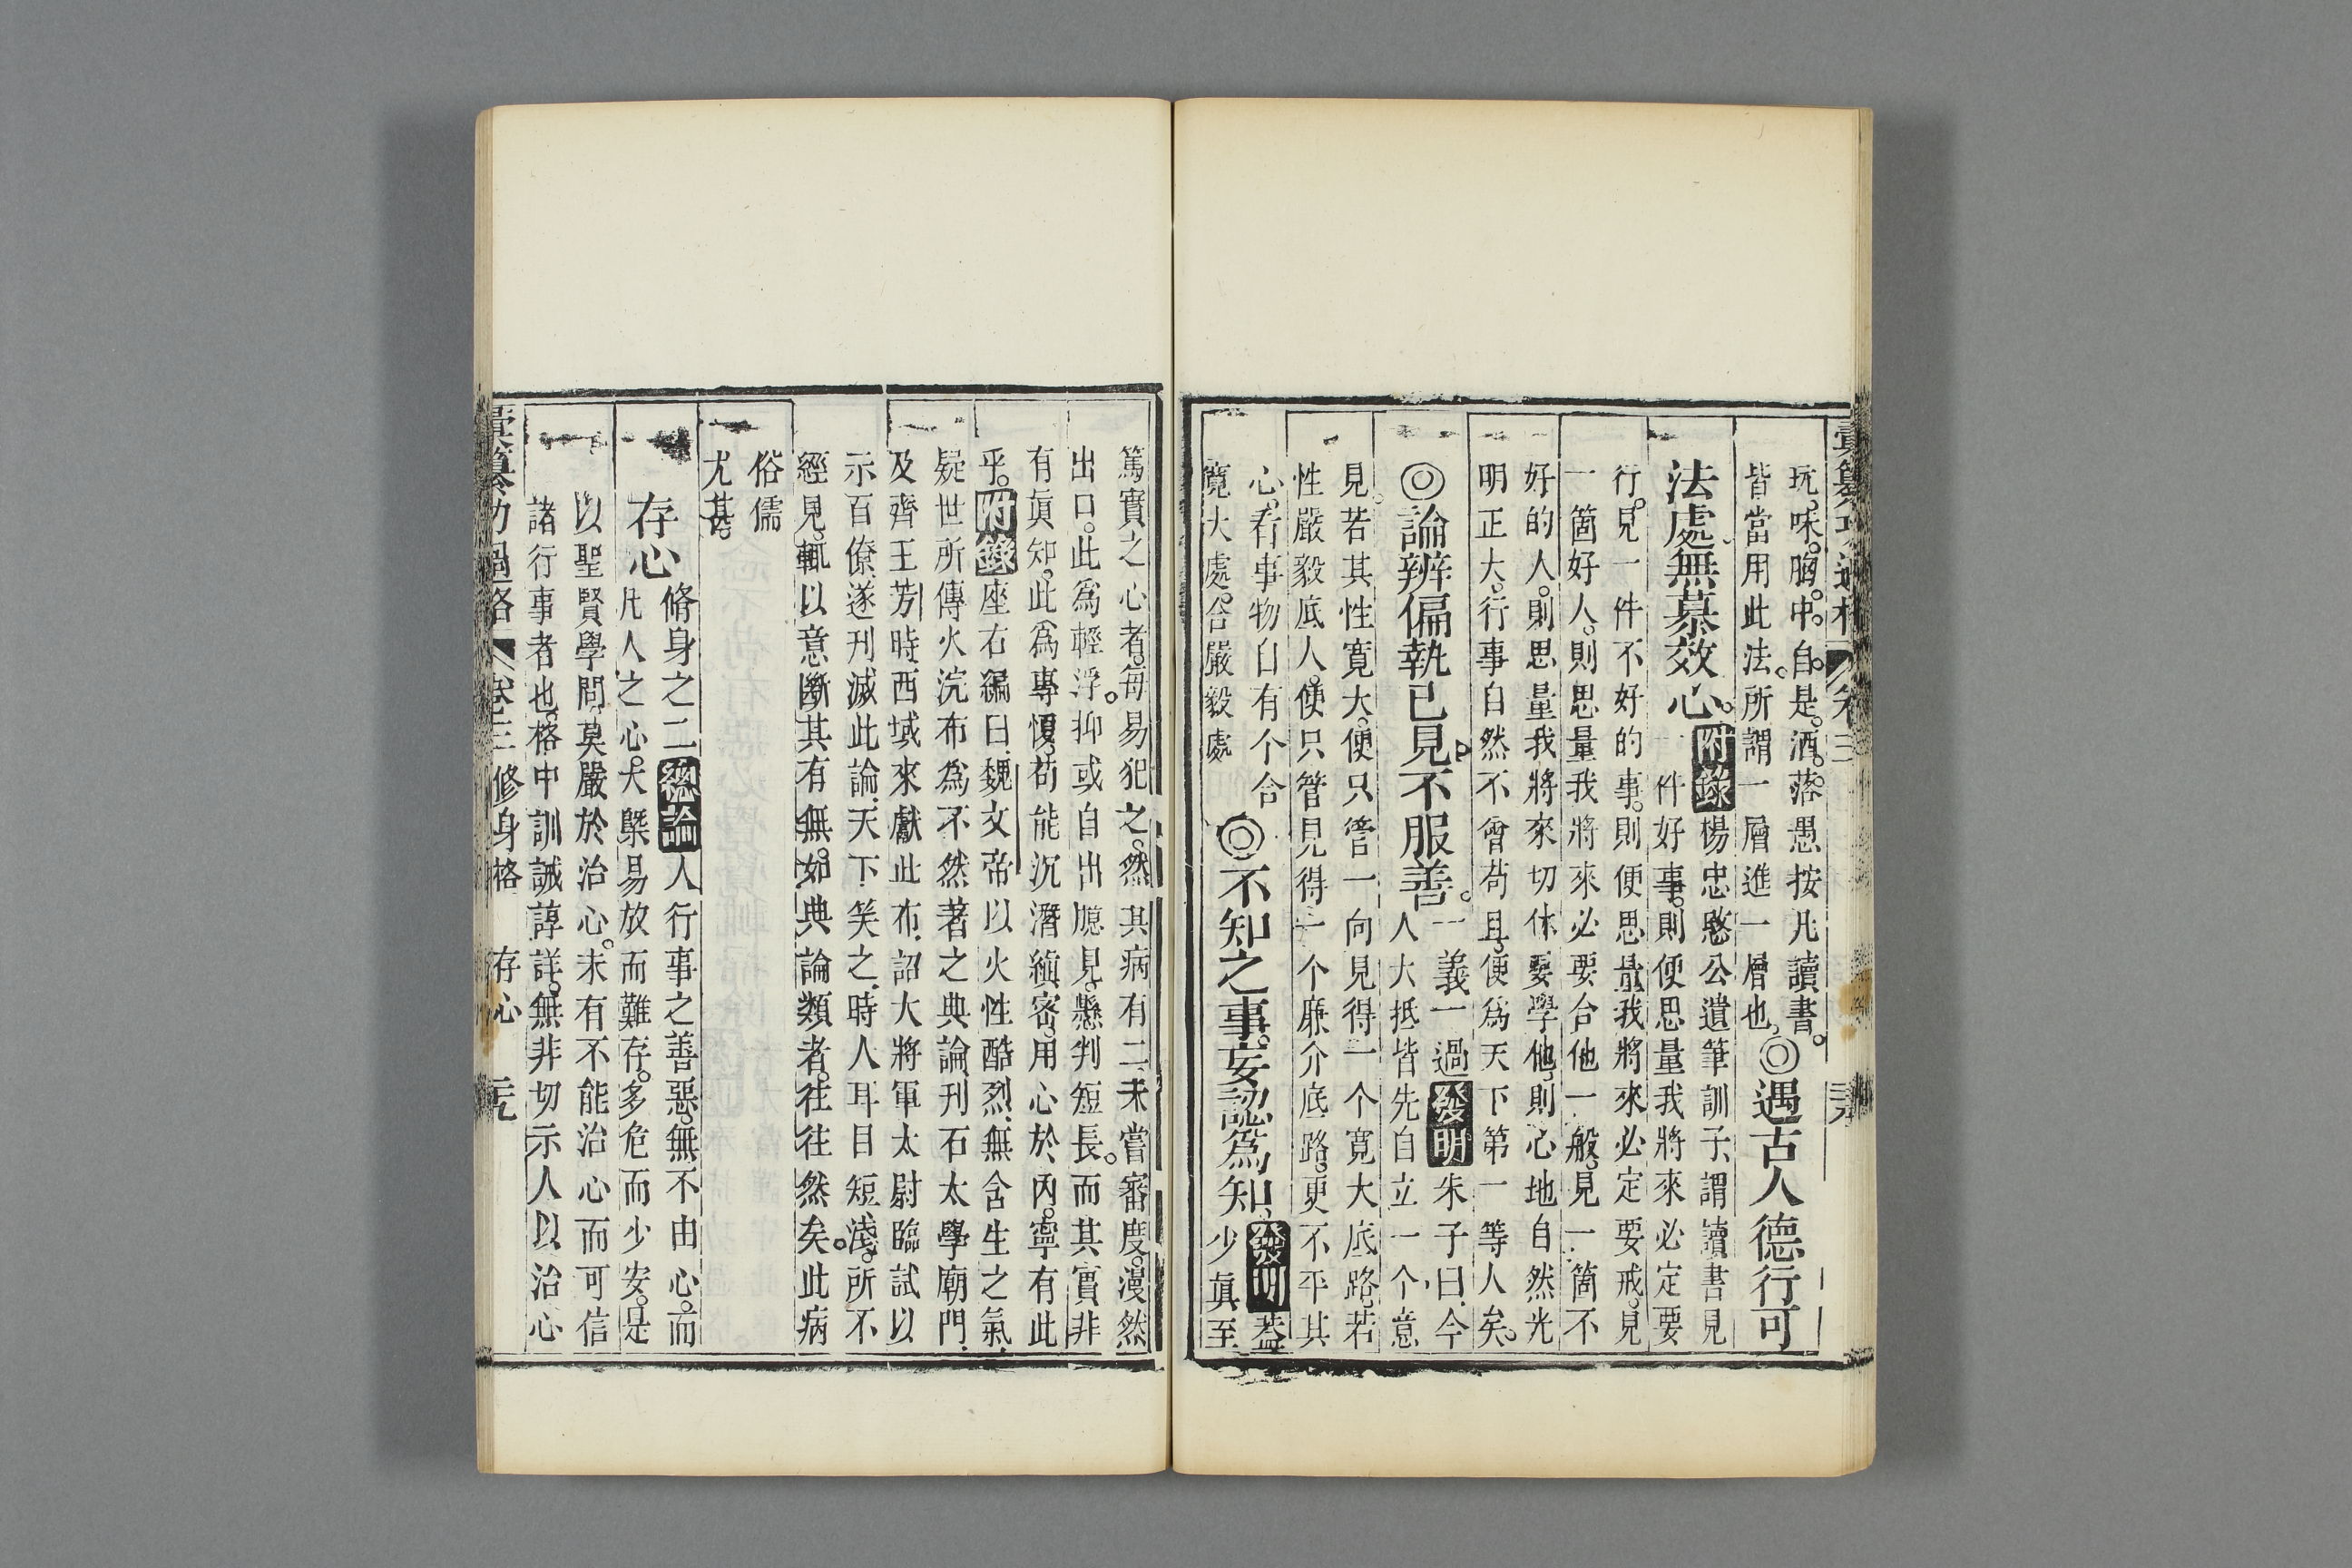 彙纂功過格 卷三
玩味。胸中自是洒落。愚按凡讀書。
皆當用此法。所謂一層進一層也。◎遇古人德行可
法處無慕效心。附錄楊忠愍公遺筆訓子。謂讀書見
一件好事。則便思量我將來必定要
行。見一件不好的事。則便思量我將來必定要戒。見
一箇好人。則思量我將來必要合他一般。見一箇不
好的人。則思量我將來切休要學他。則心地自然光
明正大。行事自然不會苟且。便為天下第一等人矣。
◎論辨偏執已見不服善。一義一過發明朱子曰。今
人大抵皆先自立一个意
見。若其性寬大。便只管一向見得一个寬大底路。若
性嚴毅底人。便只管見得一个廉介底路。更不平其
心。看事物自有个合
寬大處。合嚴毅處◎不知之事。妄認為知。發明蓋
少真至
篤實之心者。每易犯之。然其病有二。未嘗審度。漫然
出口。此為輕浮。抑或自出臆見。懸判短長。而其實非
有真知。此為專愎。苟能沉潛縝密。用心於內。寧有此
乎。附錄座右編曰。魏文帝以火性酷烈。無含生之氣。
疑世所傳火浣布為不然。著之典論。刊石太學廟門。
及齊王芳時。西域來獻此布。詔大將軍太尉臨試以
示百僚。遂刊滅此論。天下笑之。時人耳目短淺。所不
經見。輒以意斷其有無。如典論類者。往往然矣。此病
俗儒
尤甚。
存心脩身之二總論人行事之善惡。無不由心。而
凡人之心。大槩易放而難存。多危而少安。是
以聖賢學問。莫嚴於治心。未有不能治心而可信
諸行事者也。格中訓誡諄詳。無非切示人以治心
彙纂功過格 卷三 修身格 存心